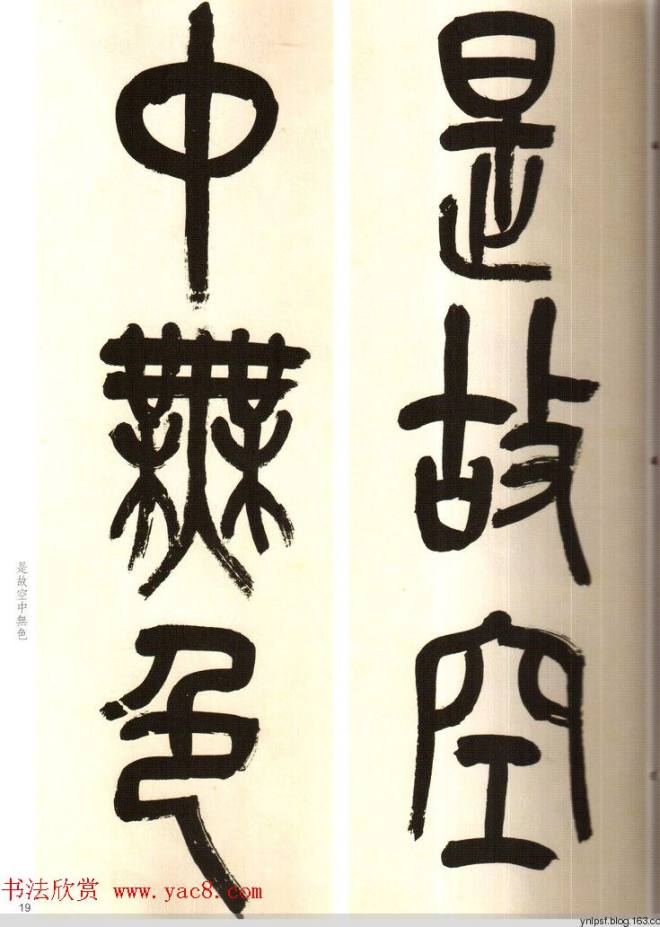 是故空
中無色
是故空中無色
书法欣赏 www.yac8.com
19
ynlpsf.blog.163.cc